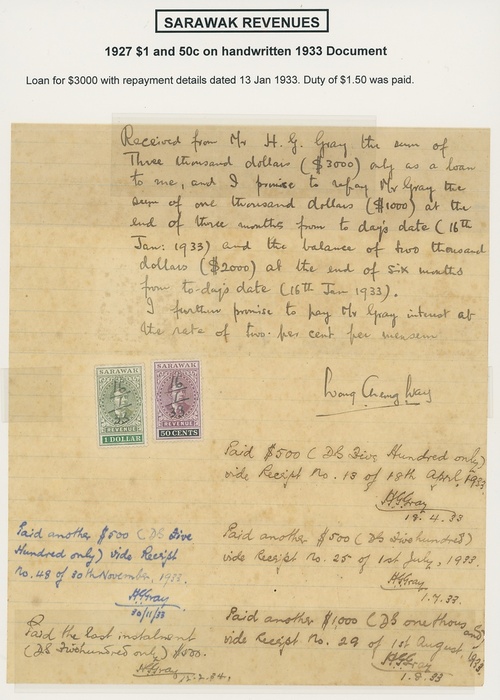 SARAWAK REVENUES
1927 $1 and 50c on handwritten 1933 Document
Loan for $3000 with repayment details dated 13 Jan 1933. Duty of $1.50 was paid.
Received from Mr H. G. Gray the sum of
Three thousand dollars ($3000) only as a loan
to me, and I promise to repay Mr Gray the
sum of one thousand dollars ($1000) at the
end of three months from to day's date (16th
Jan: 1933) and the balance of two thousand
dollars ($2000) at the end of six months
from to-day's date (16th Jan 1933).
I further promise to pay Mr Gray interest at
the rate of two per cent per mensem
SARAWAK
16
1
33
REVENUE
1 DOLLAR
SARAWAK
16
1
33
REVENUE
50 CENTS
Paid $500 (D$ Five Hundred only)
vide Receipt No. 13 of 18th April, 1933.
HGGray
18.4.33
Paid another $500 (D$ Five
Hundred only) vide Receipt
No. 48 of 30th November, 1933.
HGGray
30/11/33
Paid another $500 (D$ Fivehundred)
vide Receipt No. 25 of 1st July, 1933.
HGGray
1.7.33.
Paid the last instalment
(D$ Fivehundred only) $500.
HGGray
Paid another $1000 (D$ one thousand)
vide Receipt No. 29 of 1st August, 1933
HGGray
1.8.33